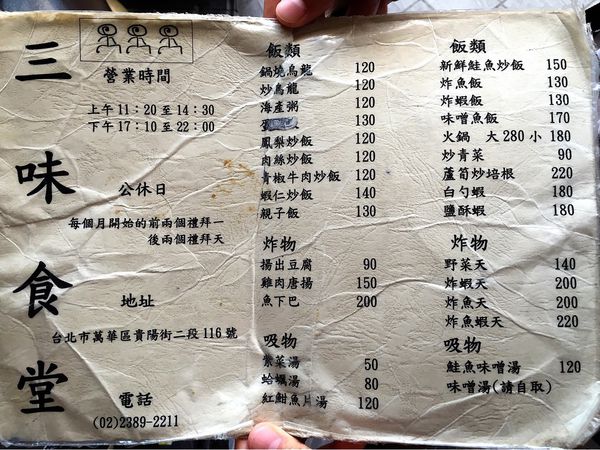 三味食堂
營業時間
上午11:20至14:30
下午17:10至22:00
公休日
每個月開始的前兩個禮拜一
後兩個禮拜天
地址
台北市萬華區貴陽街二段116號
電話
(02)2389-2211
飯類
鍋燒烏龍 120
炒烏龍 120
海產粥 120
130
鳳梨炒飯 120
肉絲炒飯 120
青椒牛肉炒飯 120
蝦仁炒飯 140
親子飯 130
炸物
揚出豆腐 90
雞肉唐揚 150
魚下巴 200
吸物
紫菜湯 50
蛤蠣湯 80
紅魽魚片湯 120
飯類
新鮮鮭魚炒飯 150
炸魚飯 130
炸蝦飯 130
味噌魚飯 170
火鍋 大280小180
炒青菜 90
蘆筍炒培根 220
白勺蝦 180
鹽酥蝦 180
炸物
野菜天 140
炸蝦天 200
炸魚天 200
炸魚蝦天 220
吸物
鮭魚味噌湯 120
味噌湯(請自取)